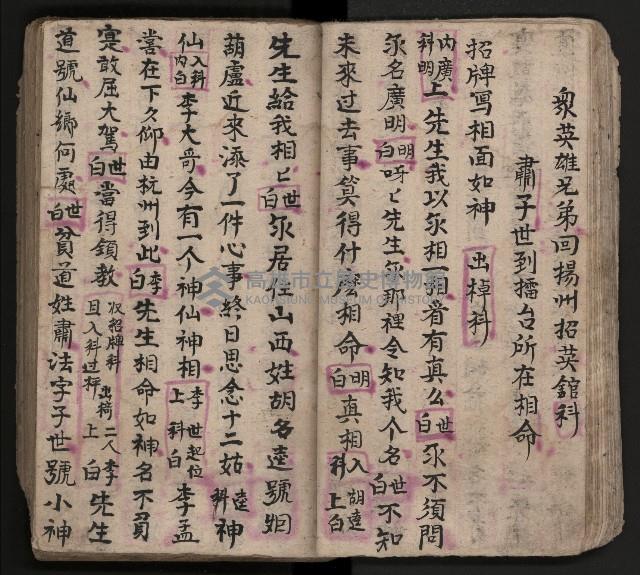 衆英雄兄弟回揚州招英舘科
肅子世到擂台所在相命
招牌写相面如神 出棹科
内科廣明上先生我以永相一相看有真么世白永不須問
永名廣明明白呀ヒ先生永那裡令知我个名世白不知
未來过去事算得什麽相命明白真相入科胡逵上白
先生給我相ヒ世白永居住山西姓胡名逵號
葫盧近來添了一件心事終日思念十二姑逵科神
仙入科内白李大哥今有一个神仙神相李上世起位科白李孟
嘗在下久仰由杭州到此李白先生相命如神名不
寔敢屈大駕世白當得領教收招牌科出椅二人李且入科过 上白先生
道號仙鄉何處世白貧道姓肅法字子世號小神
高雄市立歷史博物館
KAOHSIUNG MUSEUM OF HISTORY